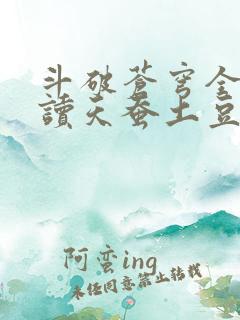 斗破蒼穹全
讀天蚕土豆
阿蛮ing
未经同意禁止转载